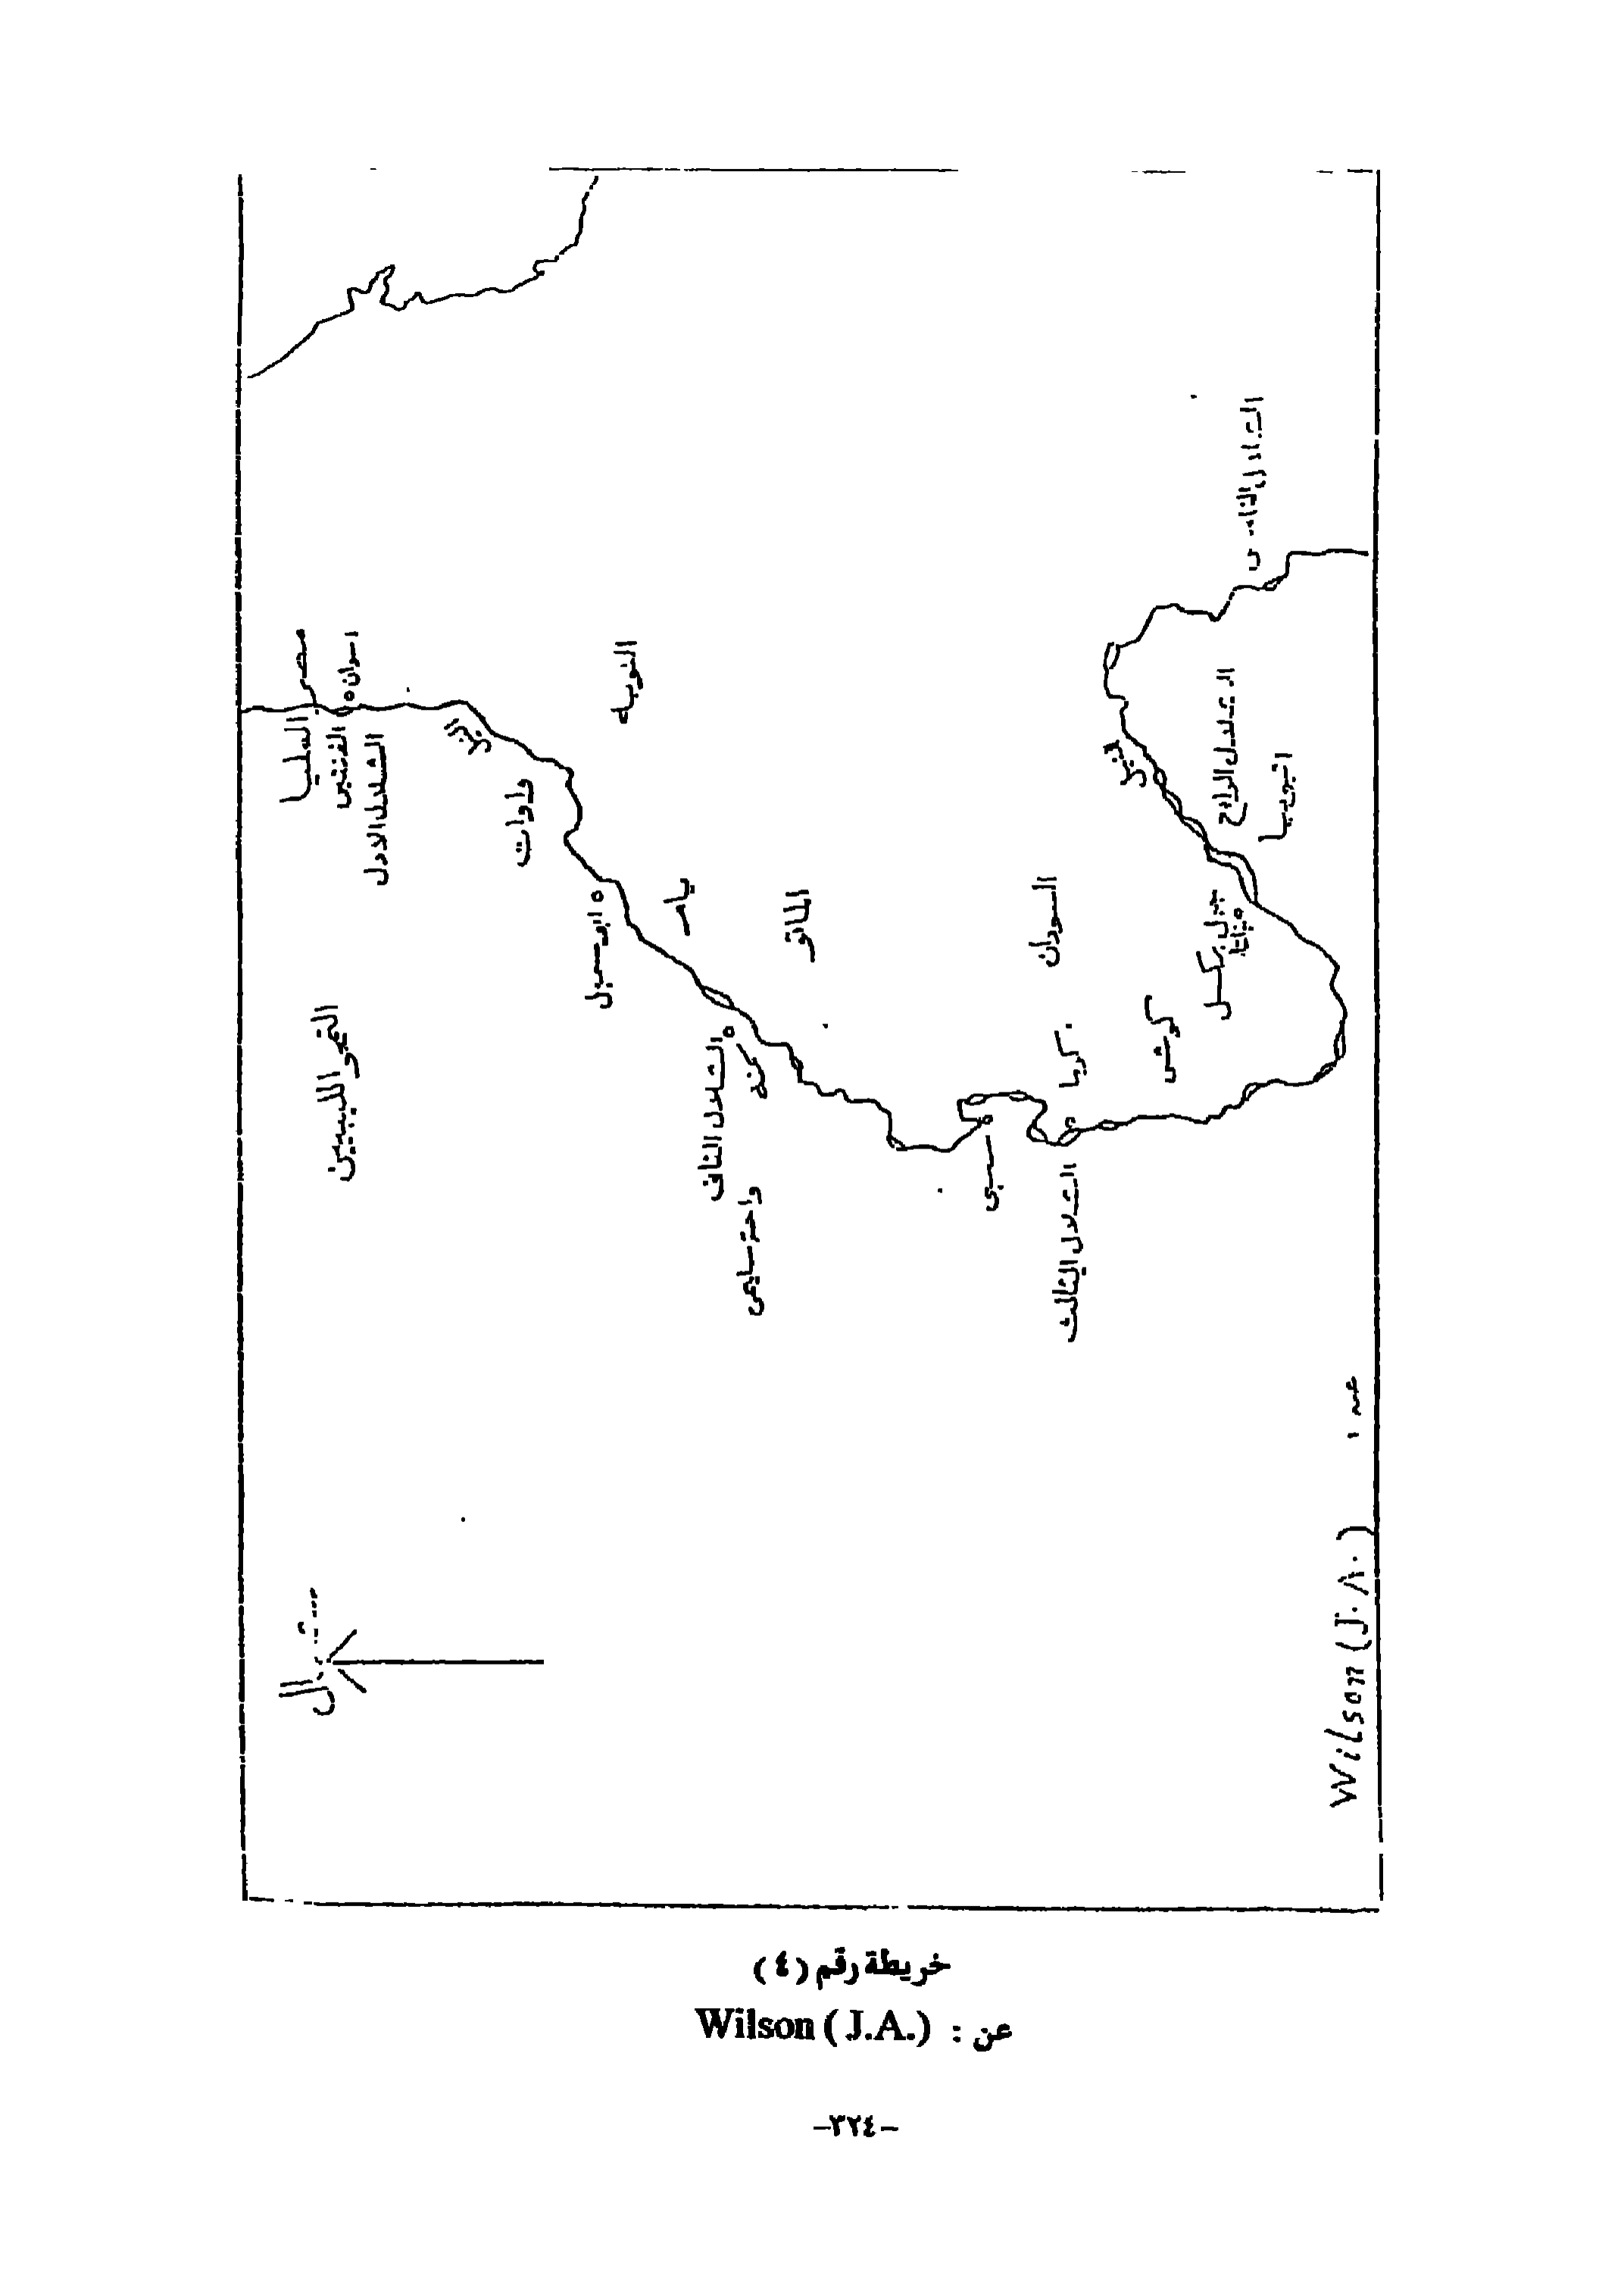 شمال
مصر
العليا
اسوان
الفنتين
الشلال الاول
التمحو الليبيين
النيل
واوات
النوبه
ابو سمبل
يام
الشلال الثانى
سمنه
واحة سليمى
السودان
كرما
الشلال الثالث
كوش
جبل بركل
نباتا
النيل
الشلال الرابع
اثيوبيا
الشلال الخامس
Wilson (J.A.)
خريطة رقم (٤)
عن : Wilson ( J.A.)
-٣٢٤-